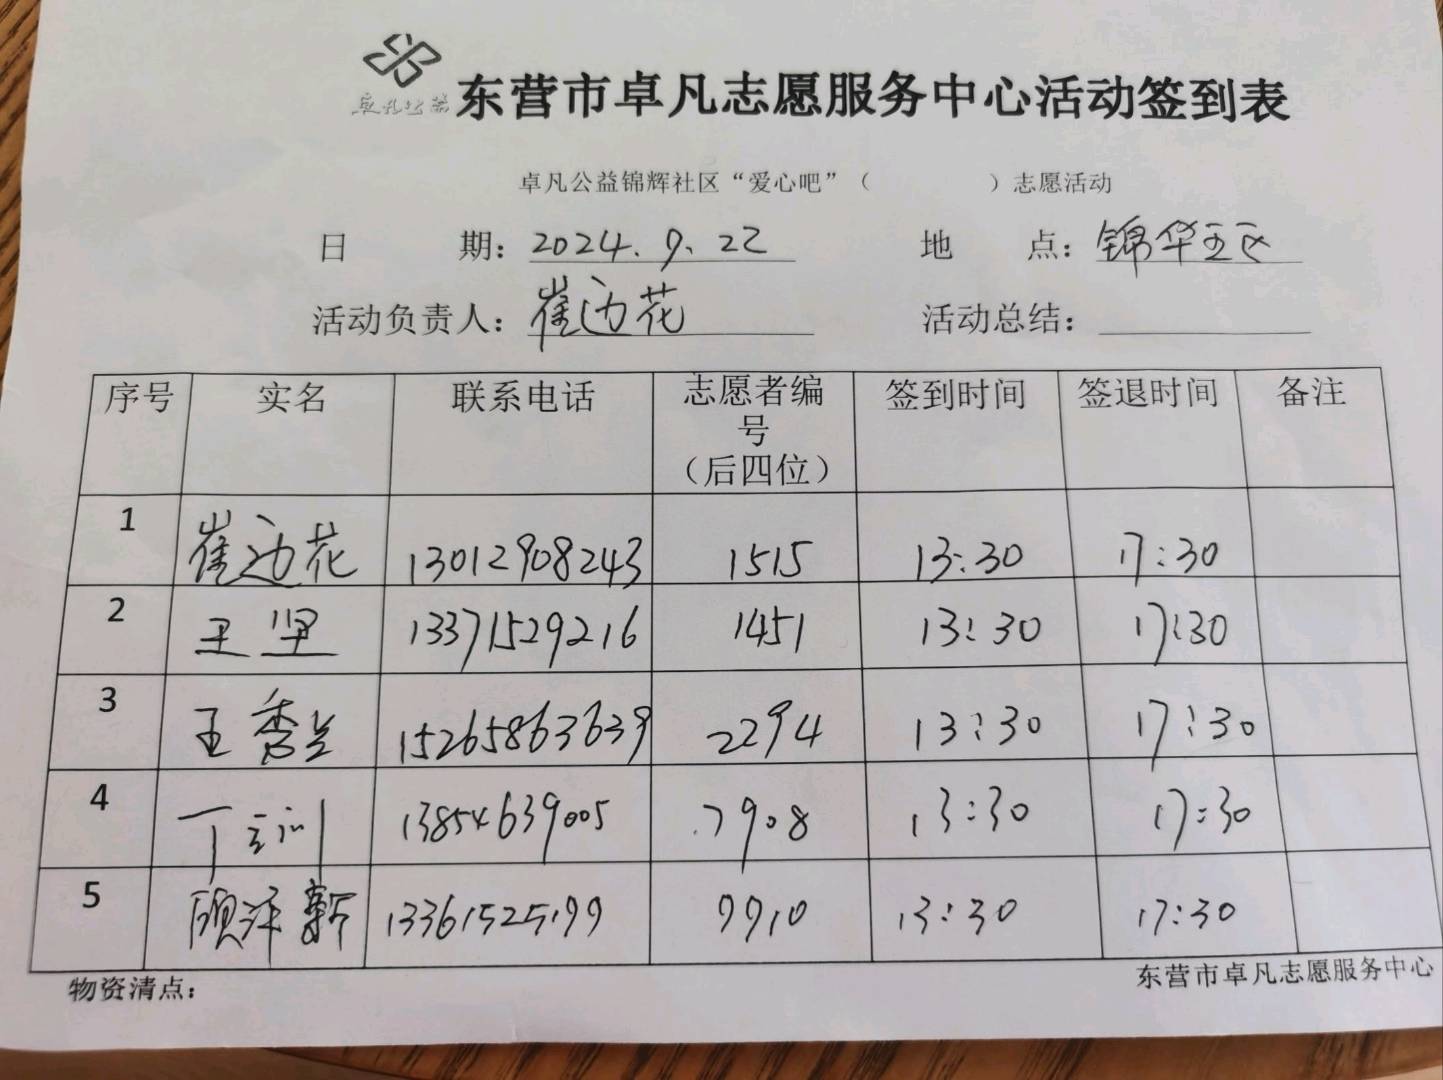 卓凡公益
东营市卓凡志愿服务中心活动签到表
卓凡公益锦辉社区“爱心吧”（ ）志愿活动
日 期：2024.9.22 地 点：锦华五区
活动负责人：崔边花 活动总结：
序号 实名 联系电话 志愿者编号（后四位） 签到时间 签退时间 备注
1 崔边花 13012908243 1515 13:30 17:30
2 王坚 13371529216 1451 13:30 17:30
3 王秀兰 15265863639 2294 13:30 17:30
4 丁 13854639005 7908 13:30 17:30
5 顾洋新 13361525199 9910 13:30 17:30
物资清点： 东营市卓凡志愿服务中心